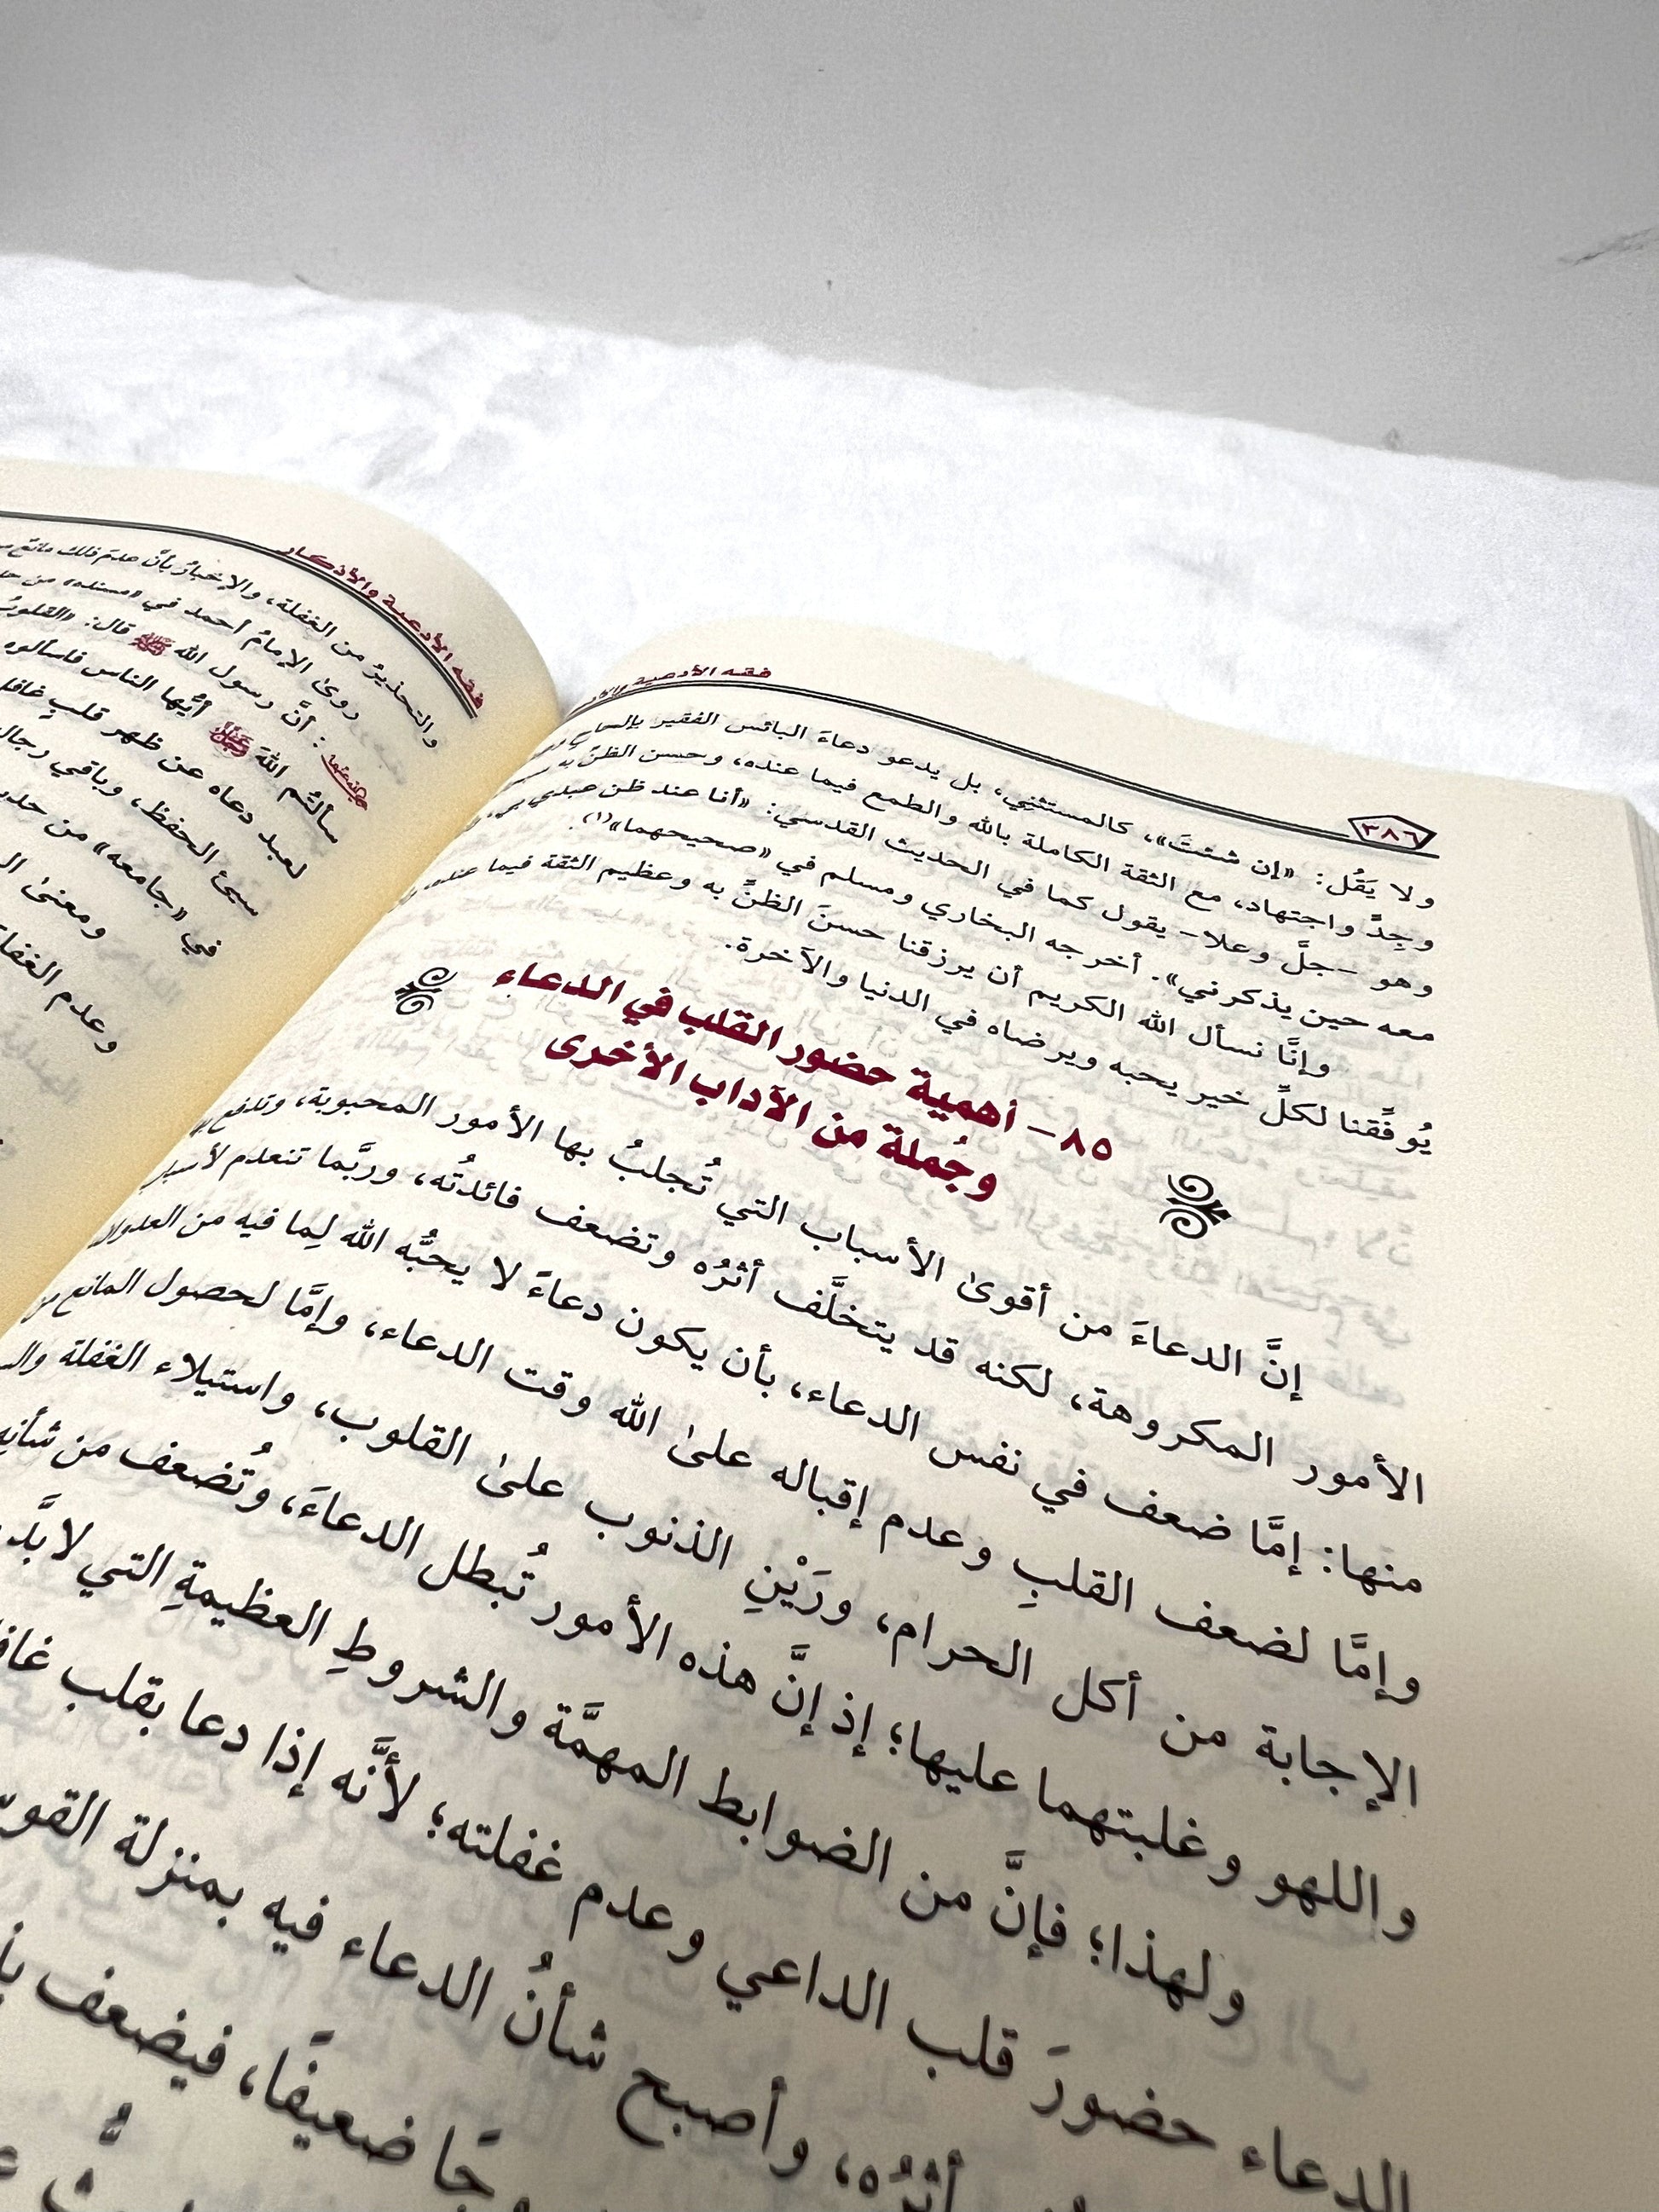 ٣٨٦
فقه الأدعية والأذكار
ولا يَقُل: «إن شئتَ»، كالمستثنِي، بل يدعو دعاءَ البائس الفقير بإلحاحٍ
وجِدٍّ واجتهاد، مع الثقة الكاملة بالله والطمع فيما عنده، وحسن الظنِّ به
وهو -جلَّ وعلا- يقول كما في الحديث القدسي: «أنا عند ظن عبدي بي،
معه حين يذكرني». أخرجه البخاري ومسلم في «صحيحهما»(١).
وإنَّا نسأل الله الكريم أن يرزقنا حسنَ الظنِّ به وعظيم الثقة فيما عنده،
يُوفِّقنا لكلِّ خير يحبه ويرضاه في الدنيا والآخرة.
٨٥- أهمية حضور القلب في الدعاء
وجُملة من الآداب الأخرى
إنَّ الدعاءَ من أقوىٰ الأسباب التي تُجلبُ بها الأمور المحبوبة، وتدفع بها
الأمور المكروهة، لكنه قد يتخلَّف أثرُه وتضعف فائدتُه، وربَّما تنعدم لأسباب
منها: إمَّا ضعف في نفس الدعاء، بأن يكون دعاءً لا يحبُّه الله لِما فيه من العدوان
وإمَّا لضعف القلبِ وعدم إقباله علىٰ الله وقت الدعاء، وإمَّا لحصول المانع من
الإجابة من أكل الحرام، ورَيْنِ الذنوب علىٰ القلوب، واستيلاء الغفلة
واللهو وغلبتهما عليها؛ إذ إنَّ هذه الأمور تُبطل الدعاءَ، وتُضعف من شأنه
ولهذا؛ فإنَّ من الضوابط المهمَّة والشروطِ العظيمةِ التي لابَّد
الدعاء حضورَ قلب الداعي وعدم غفلته؛ لأنَّه إذا دعا بقلب
أثرُه، وأصبح شأنُ الدعاء فيه بمنزلة
ضعيفًا، فيضعف
فقه الأدعية والأذكار
والتحذيرُ من الغفلة، والإخبارُ بأنَّ عدمَ ذلك مانعٌ
روىٰ الإمامُ أحمد في «مسنده» من
رضي الله عنهما: أنَّ رسول الله ﷺ قال: «القلوبُ
سألتُم اللهَ عز وجل أيُّها الناس فاسألوه
لعبد دعاه عن ظهر قلبٍ غافل
سيئ الحفظ، وباقي رجال
في «جامعه» من
ومعنىٰ
وعدم